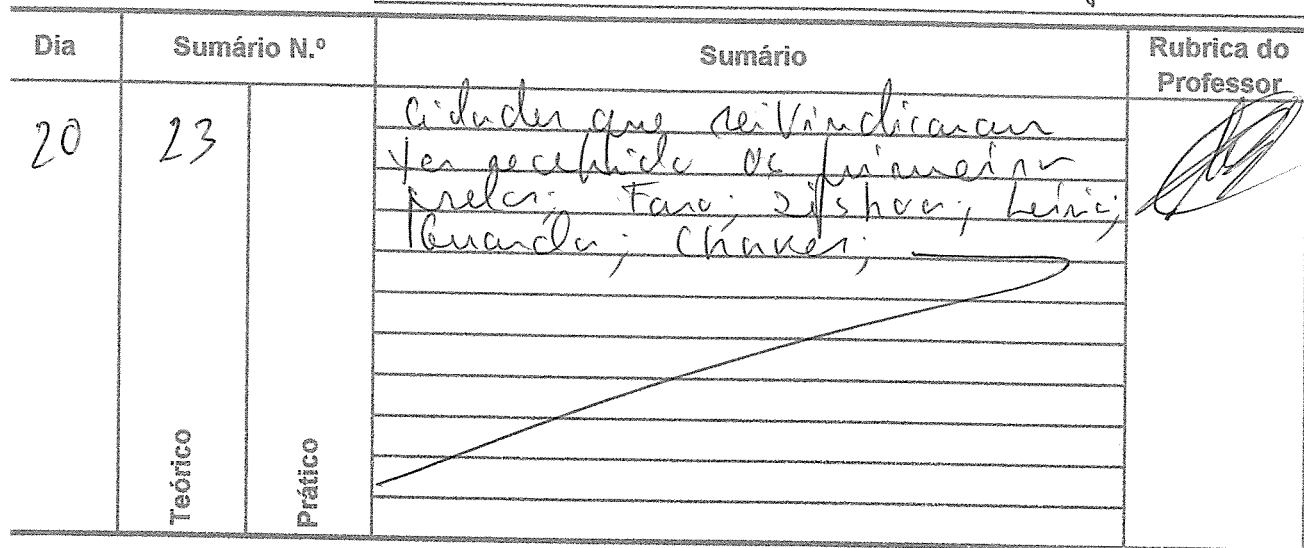 Dia Sumário N.º Sumário Rubrica do Professor
20 23 Cidades que reivindicaram
ter recebido os primeiros
prelos: Faro; Lisboa; Leiria;
Guarda; Chaves;
Teórico Prático